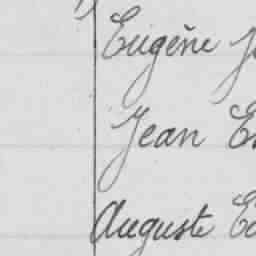 Eugène
Jean
Auguste